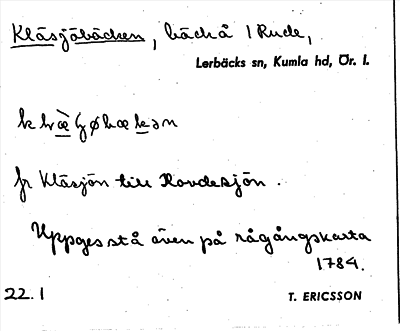 Kläsjöbäcken, bäck å 1 Rude,
Lerbäcks sn, Kumla hd, Ör. l.
fr Kläsjön till Hovdesjön.
Uppges stå även på rågångskarta
1784.
22.1
T. ERICSSON